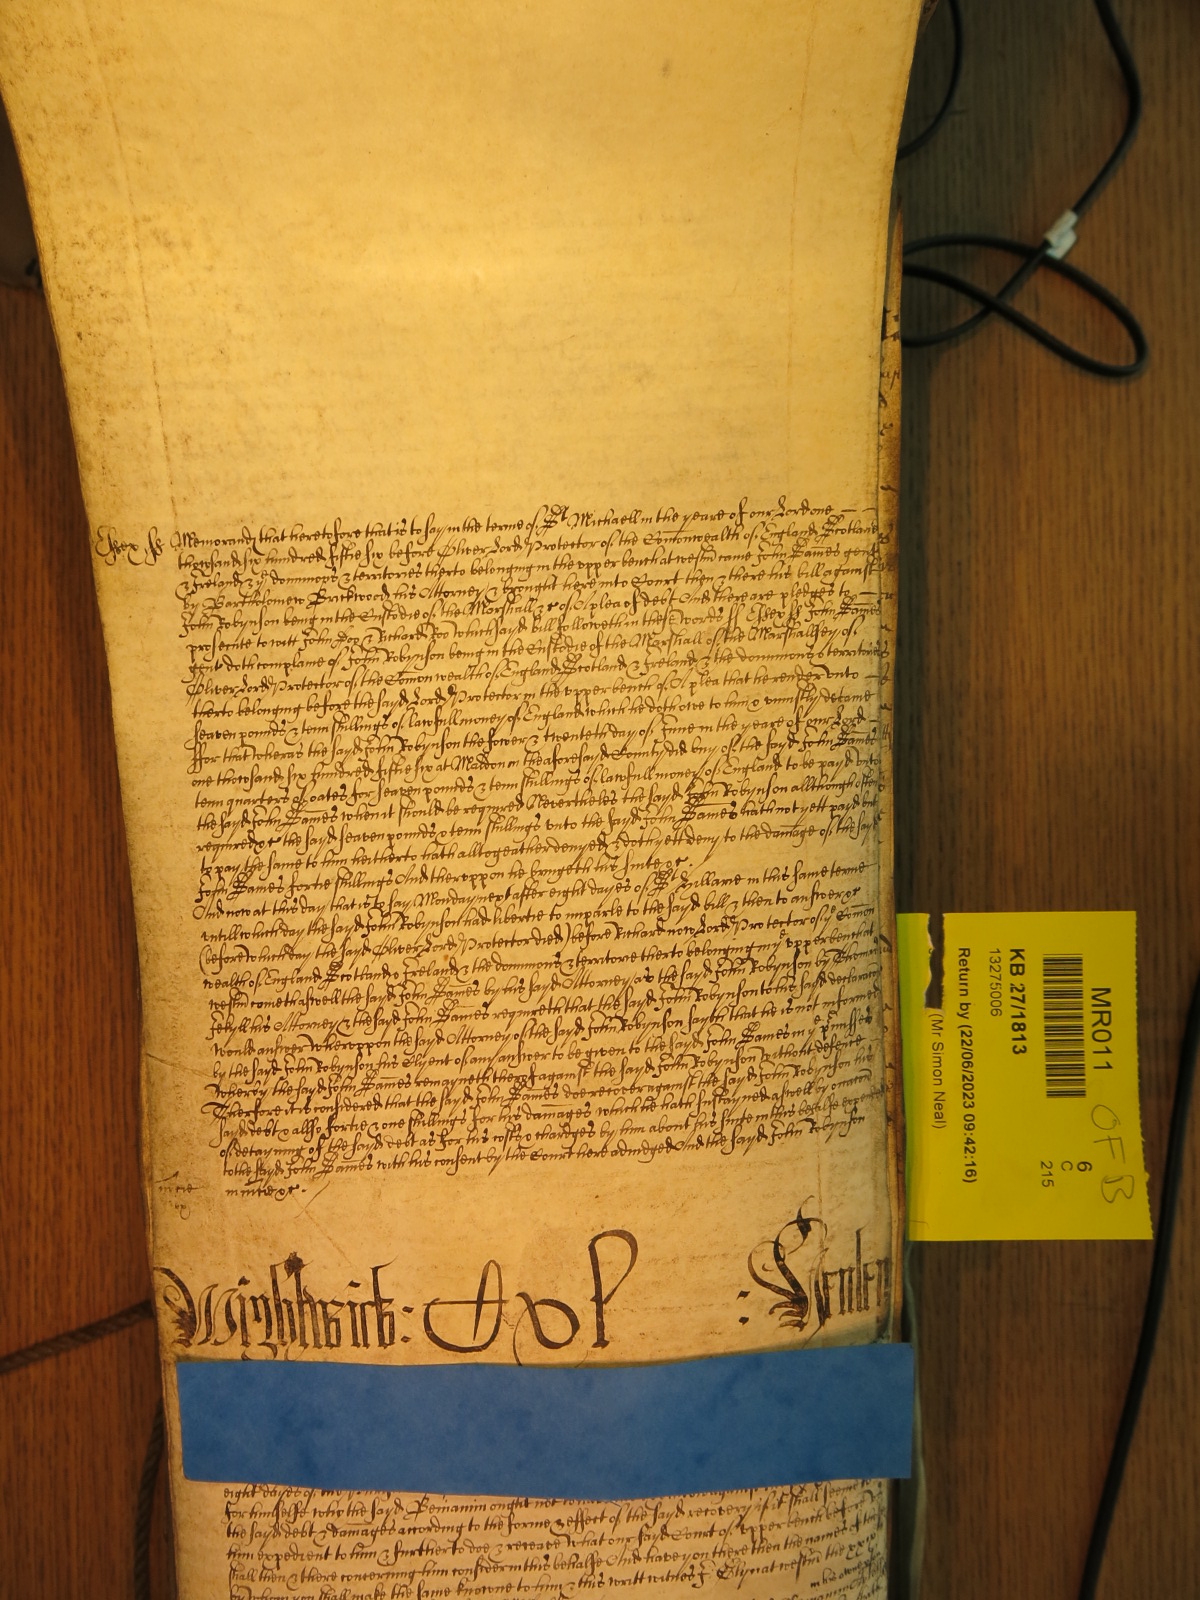 Essex ss Memorand that heretofore that is to say in the terme of St Michaell in the yeare of our Lord one
thowsand six hundred fiftie six before Oliver Lord Protector of the Comonwealth of England Scotland
& Ireland & ye dominions & territories therto belonging in the upper bench at westm came John Eames gent
by Bartholomew Brickwood his Attorney & brought here into Court then & there his bill against
John Robynson being in the Custodie of the Marshall &c of A plea of debt And there are pledges to
prosecute to witt John Doo & Richard Roo which sayd bill followeth in these words ss Essex ss John Eames
gent doth complaine of John Robynson being in the Custodie of the Marshall of the Marshallsey of
Oliver Lord Protector of the Comonwealth of England Scotland & Ireland & the dominions & territories
therto belonging before the sayd Lord Protector in the upper bench of A plea that he render unto
seaven pounds & tenn shillings of lawfull money of England which he doth owe to him & uniustly detaine
ffor that wheras the sayd John Robynson the fower & twenteth day of June in the yeare of our Lord
one thowsand six hundred fiftie six at Maldon in the aforesayd County did buy of the sayd John Eames
tenn quarters of oates for seaven pounds & tenn shillings of lawfull money of England to be payd unto
the sayd John Eames when it should be required Neverthelss the sayd John Robynson allthough often
required &c the sayd seaven pounds & tenn shillings unto the sayd John Eames hath not yett payd but
to pay the same to him hetherto hath alltogeather denyed & doth yett deny to the damage of the sayd
John Eames fortie shillings And thereuppon he bringeth his suite &c.
And now at this day that is to say Monday next after eight dayes of St Hillarie in this same terme
untill which day the sayd John Robynson had libertie to imparle to the sayd bill & then to answer &c
(before which day the sayd Oliver Lord Protector died) before Richard now Lord Protector of ye Comon
wealth of England Scotland & Ireland & the dominions & territories therto belonging in ye upper bench at
westm cometh aswell the sayd John Eames by his sayd Attorney as the sayd John Robynson by Thomas
Jekyll his Attorney & the sayd John Eames requireth that the sayd John Robynson to his sayd declaracon
would answer Whereuppon the sayd Attorney of the sayd John Robynson sayth that he is not informed
by the sayd John Robynson his Clyent of any answer to be given to the sayd John Eames in ye premisses
Whereby the sayd John Eames remayneth thereof against the sayd John Robynson without defence
Therfore it is considered that the sayd John Eames doe recover against the sayd John Robynson his
sayd debt & allso fortie & one shillings for his damages which he hath sustayned aswell by occacon
of detayning of the sayd debt as for his costs & chardges by him about his suite in this behalfe expended
to the sayd John Eames with his consent by the Court here adiudged And the sayd John Robynson
in mercie &c.
Wightwick:
: Henley
eight dayes of
for himselfe why the sayd Beniamin ought not to have
the sayd debt & damages according to the forme & effect of the sayd recovery if it shall seeme to
him expedient to him & further to doe & receave what our sayd Court of upper bench before
shall then & there concerning him consider in this behalfe And have you there then the names of
by whom you shall make the same knowne to him & this writt witnes J Glyn at westm the xxix
MR011 OF B
6
C
215
KB 27/1813
13275006
Return by (22/06/2023 09:42:16)
(Mr Simon Neal)